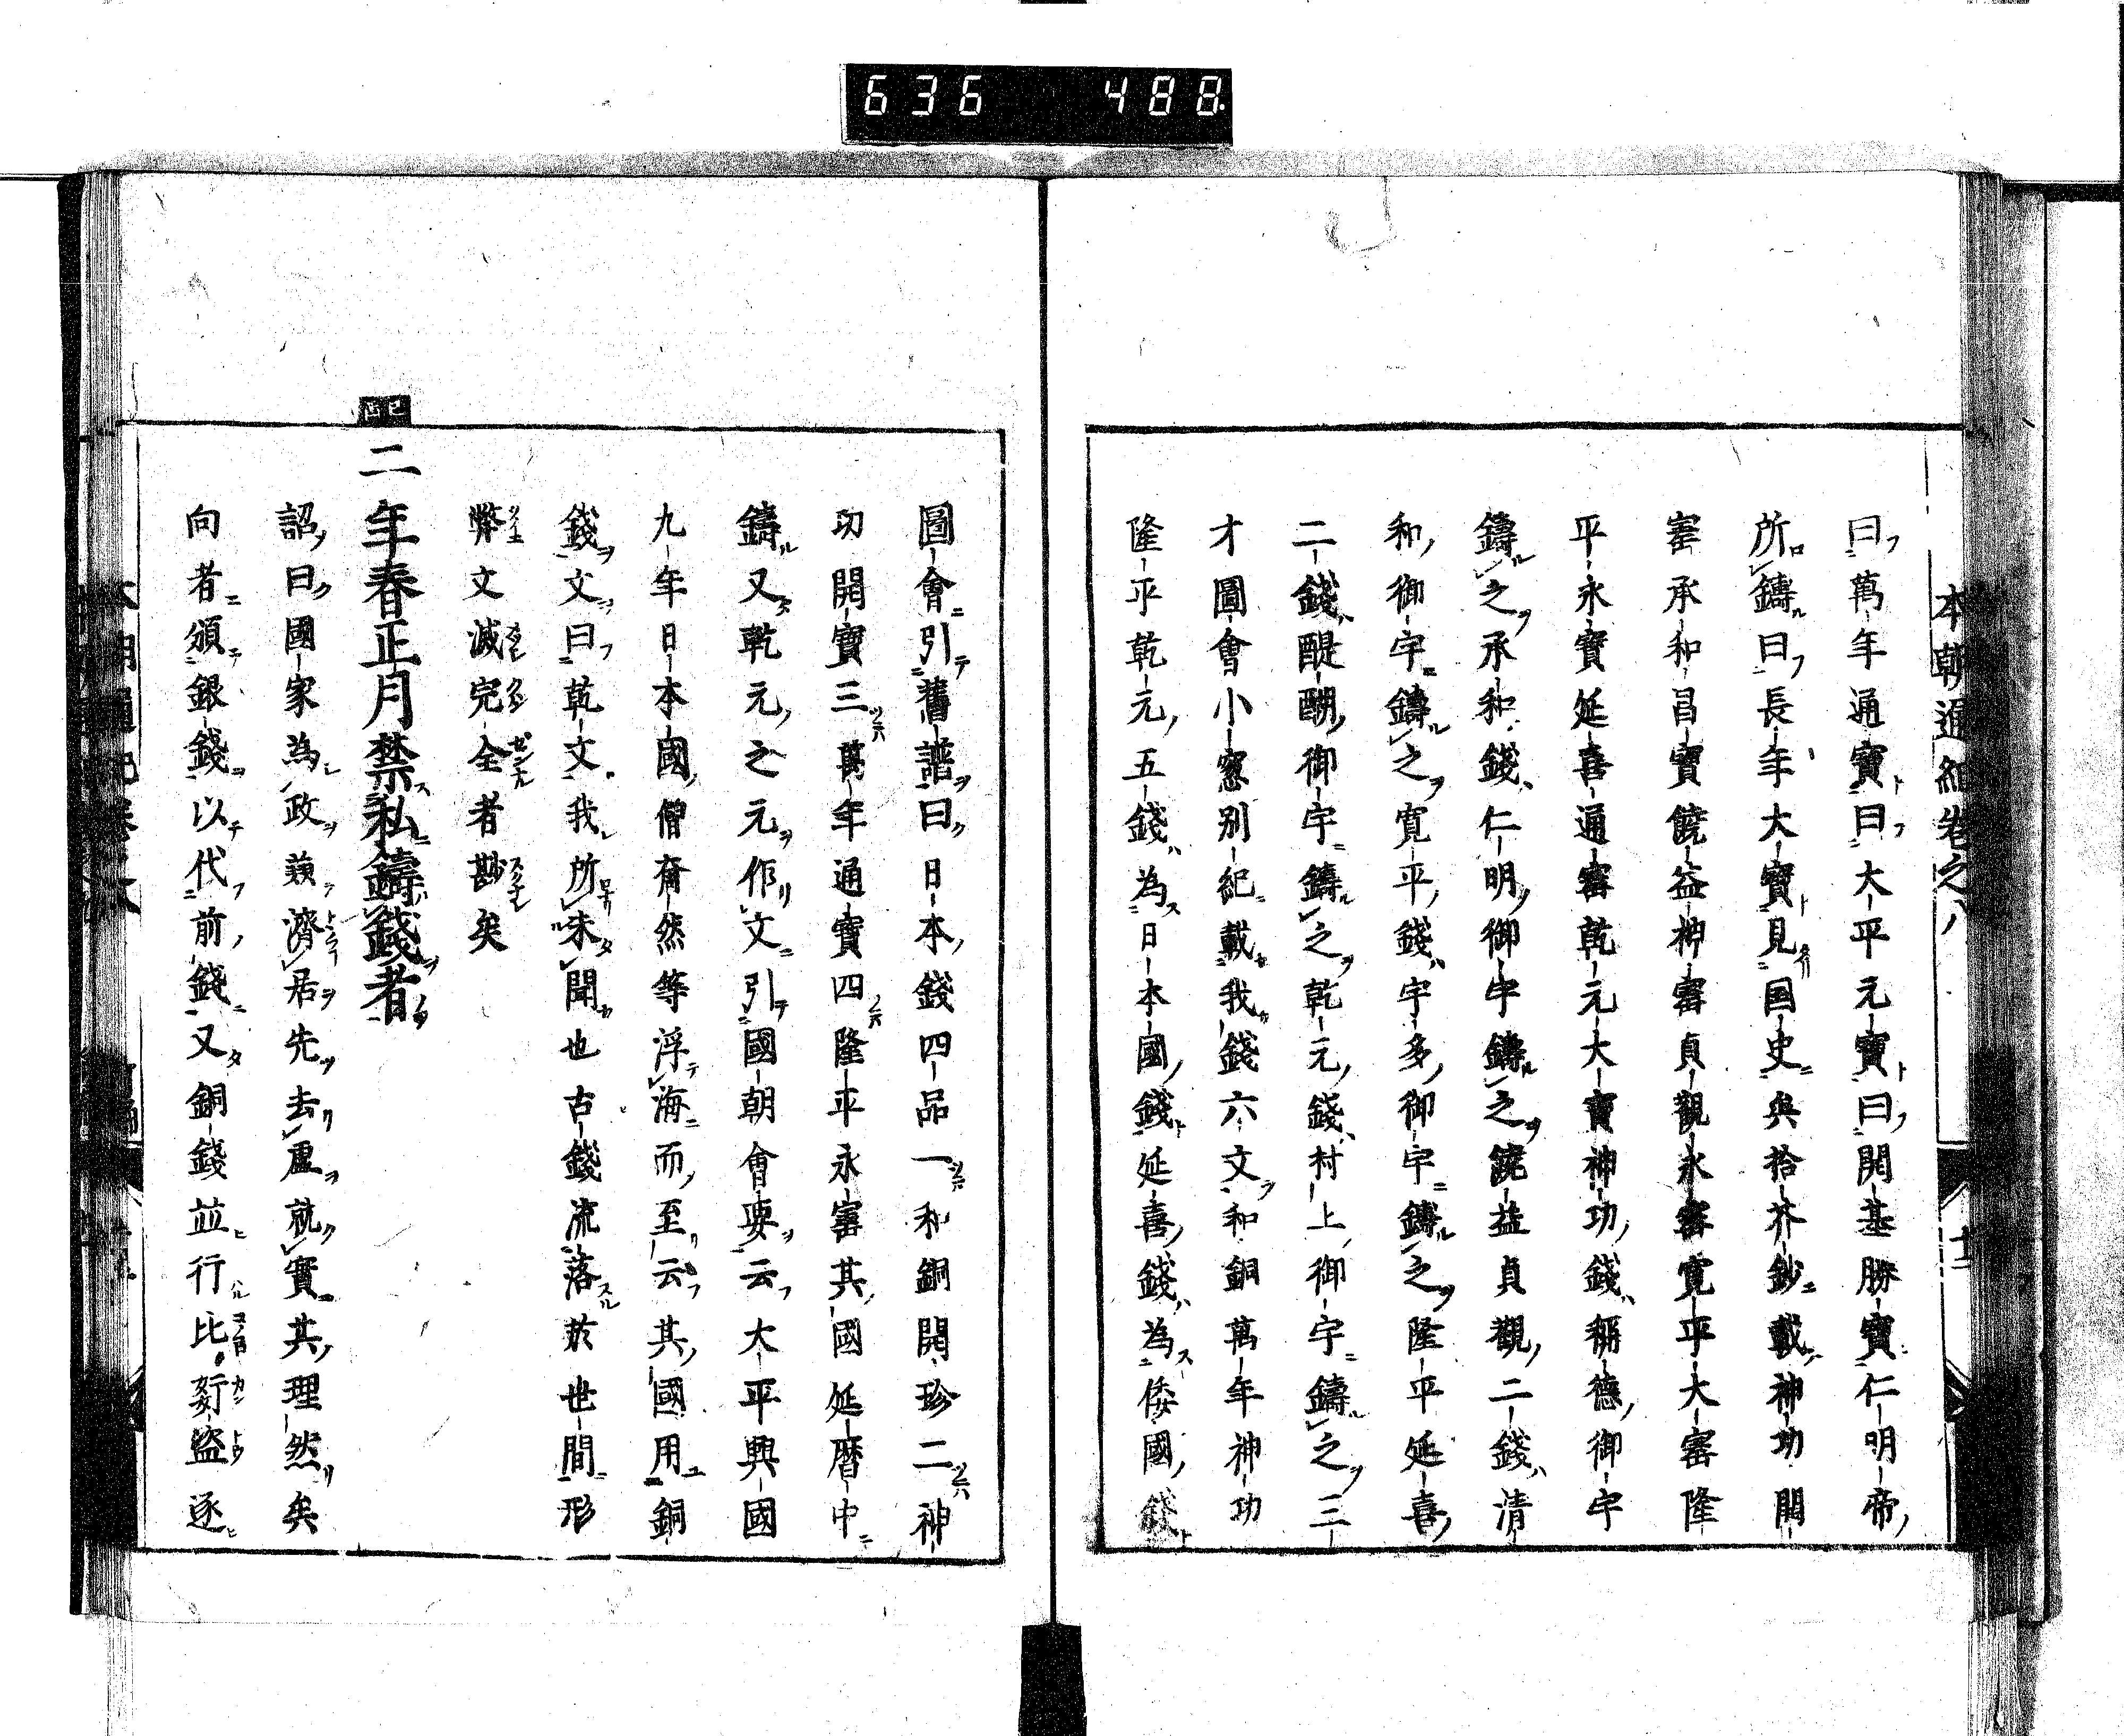 636 488
本朝通紀卷之八
十二
曰萬年通寳曰大平元寳曰開基勝寳仁明帝
所鑄曰長年大寳見国史與拾芥鈔載神功開
寳承和昌寳饒益神寳貞觀永寳寛平大寳隆
平永寳延喜通寳乾元大寳神功錢稱德御宇
鑄之承和錢仁明御宇鑄之饒益貞觀二錢清
和御宇鑄之寛平錢宇多御宇鑄之隆平延喜
二錢醍醐御宇鑄之乾元錢村上御宇鑄之三
才圖會小窓別紀載我錢六文和銅萬年神功
隆平乾元五錢為日本國錢延喜錢為倭國錢
圖會引舊譜曰日本錢四品一和銅開珍二神
功開寳三萬年通寳四隆平永寳其國延暦中
鑄又乾元之元作文引國朝會要云大平興國
九年日本國僧奝然等浮海而至云其國用銅
錢文曰乾文我所未聞也古錢流落於世間形
弊文滅完全者尠矣
己酉
二年春正月禁私鑄錢者
詔曰國家為政兼濟居先去虛就實其理然矣
向者頒銀錢以代前錢又銅錢並行比姧盜逐